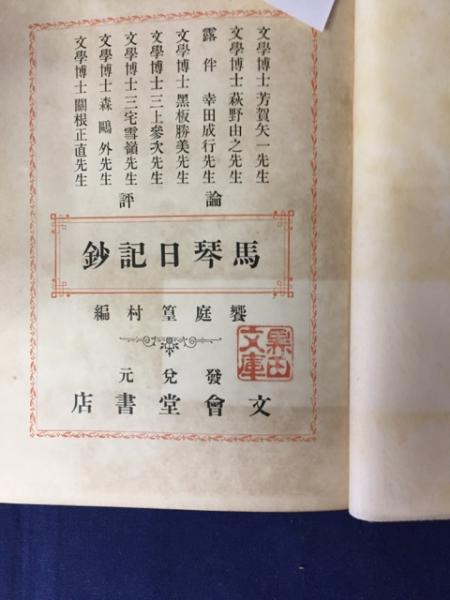 文學博士芳賀矢一先生
文學博士萩野由之先生
露伴幸田成行先生
文學博士黑板勝美先生
文學博士三上參次先生
文學博士三宅雪嶺先生
文學博士森鷗外先生
文學博士關根正直先生
論評
馬琴日記鈔
饗庭篁村編
黒田文庫
發兌元
文會堂書店